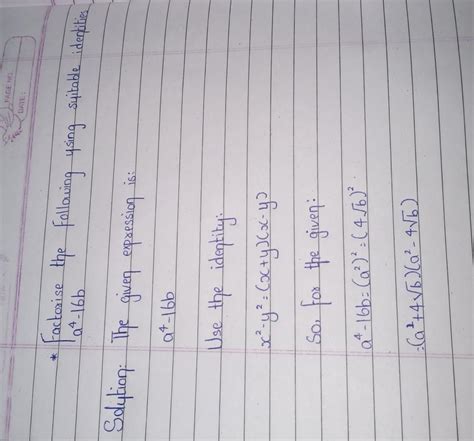 PAGE NO.
DATE:
* Factorise the following using suitable identities
a⁴-16b
Solution: The given expression is:
a⁴-16b
Use the identity:
x²-y²=(x+y)(x-y)
So, for the given:
a⁴-16b=(a²)²=(4√b)².
=(a²+4√b)(a²-4√b)